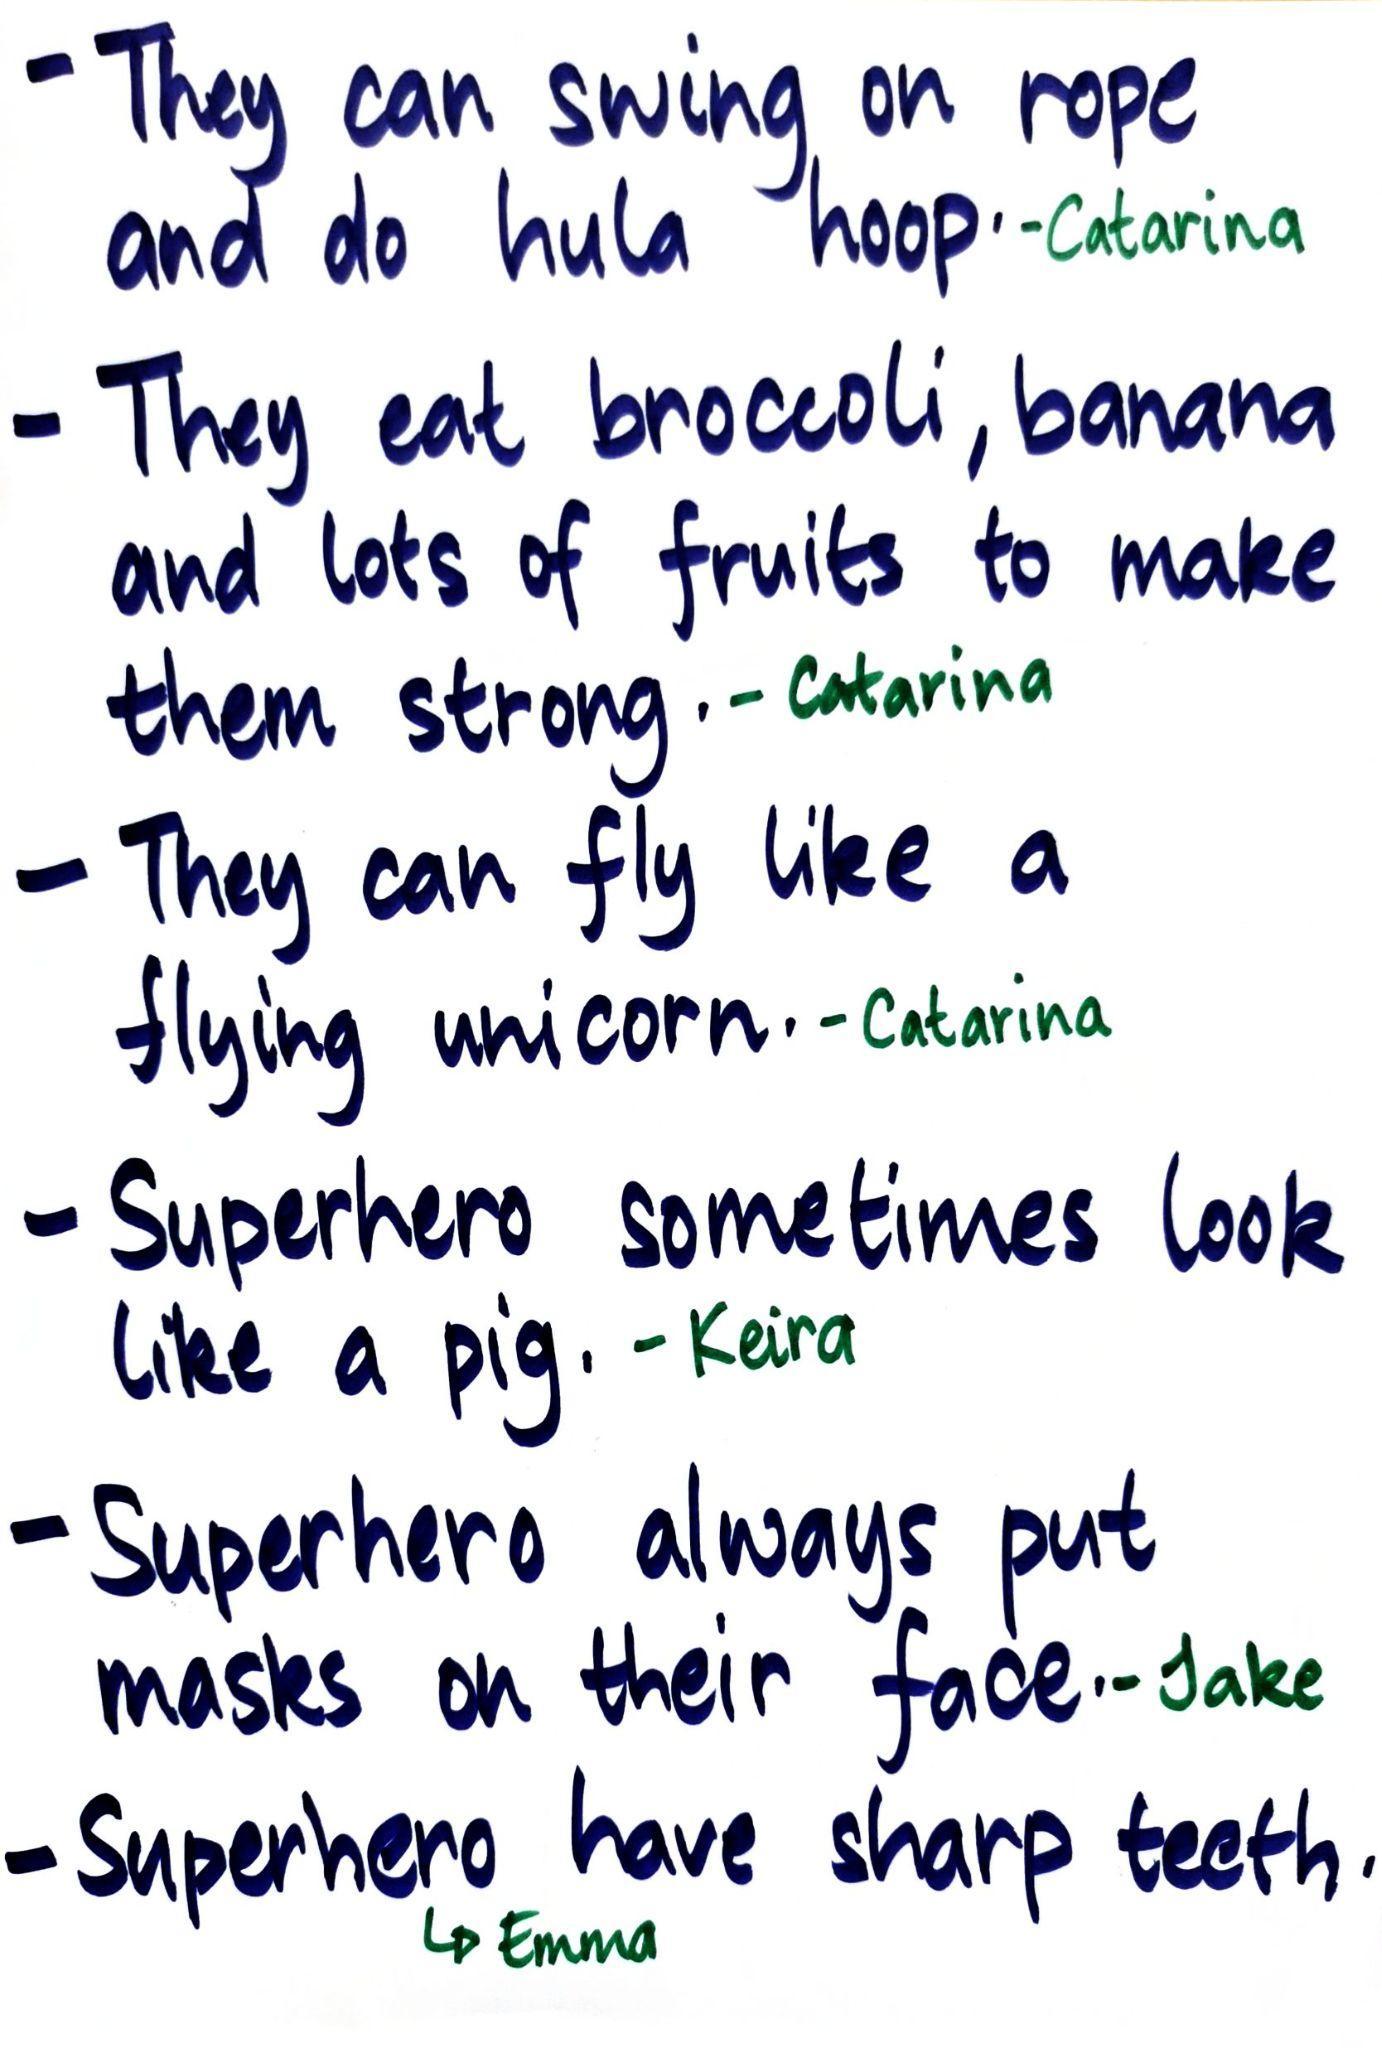 - They can swing on rope
and do hula hoop. - Catarina
- They eat broccoli, banana
and lots of fruits to make
them strong. - Catarina
- They can fly like a
flying unicorn. - Catarina
- Superhero sometimes look
like a pig. - Keira
- Superhero always put
masks on their face. - Jake
- Superhero have sharp teeth.
↳ Emma